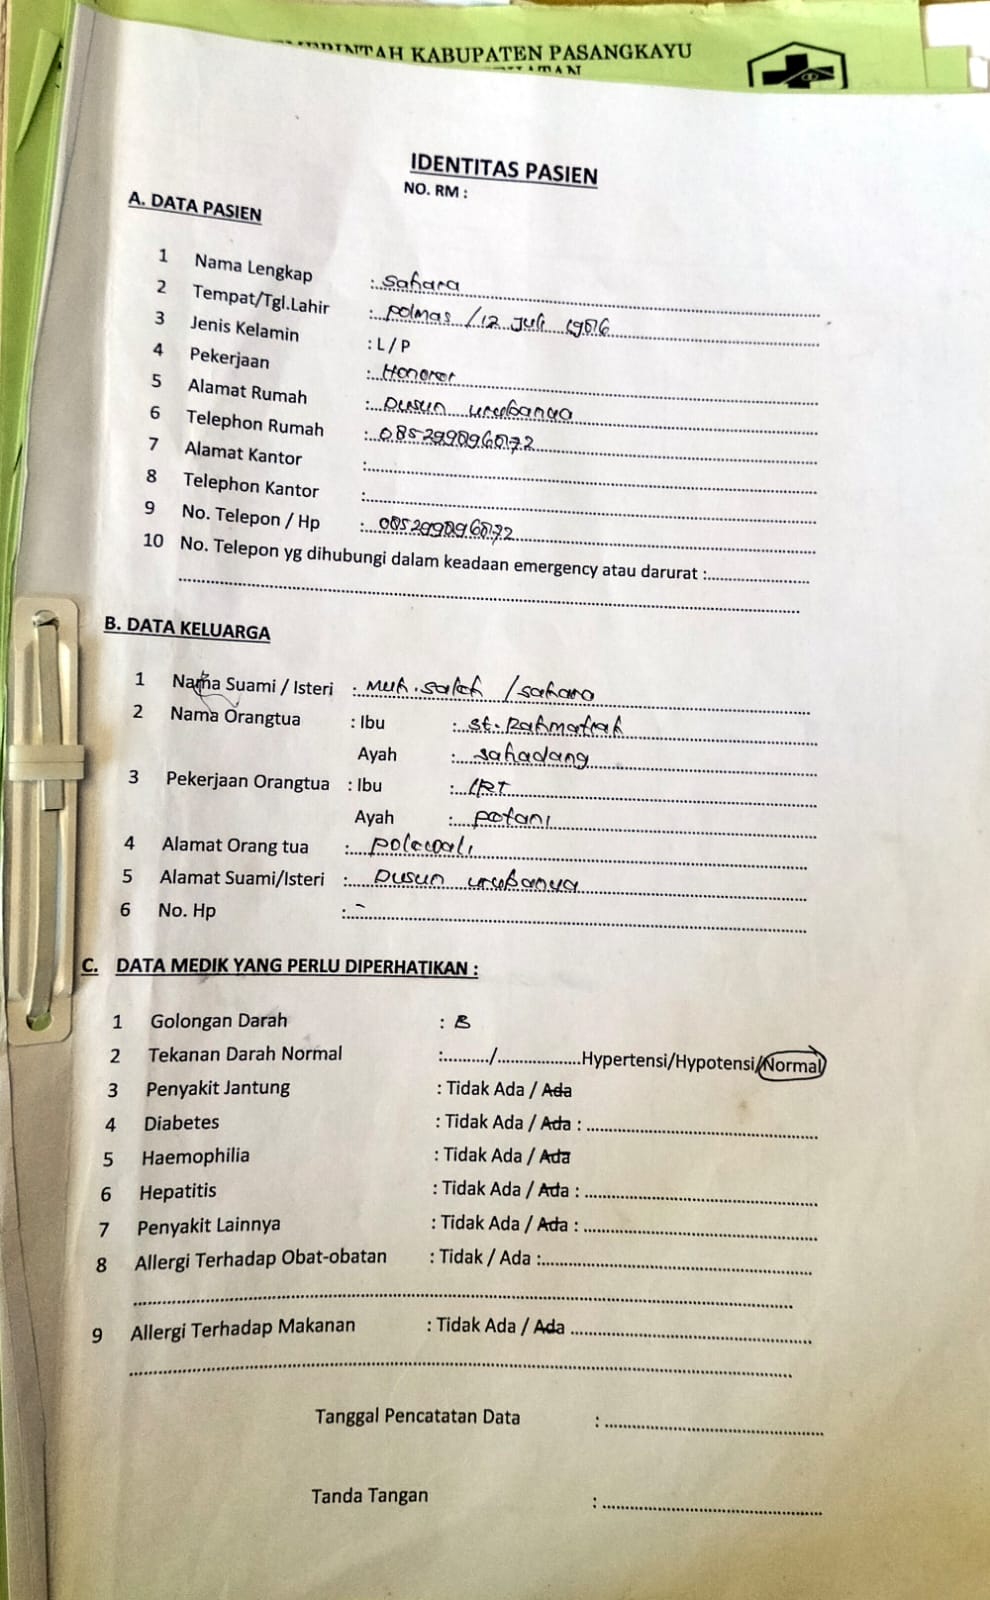 PEMERINTAH KABUPATEN PASANGKAYU
IDENTITAS PASIEN
NO. RM :
A. DATA PASIEN
1 Nama Lengkap : Sahara
2 Tempat/Tgl.Lahir : polmas / 12 Juli
3 Jenis Kelamin : L / P
4 Pekerjaan : Honorer
5 Alamat Rumah : Dusun urubanua
6 Telephon Rumah :
7 Alamat Kantor :
8 Telephon Kantor :
9 No. Telepon / Hp :
10 No. Telepon yg dihubungi dalam keadaan emergency atau darurat :
B. DATA KELUARGA
1 Nama Suami / Isteri : Muh. Saleh / Sahara
2 Nama Orangtua : Ibu : St. Rahmatiah
Ayah : Sahadang
3 Pekerjaan Orangtua : Ibu : IRT
Ayah : petani
4 Alamat Orang tua : polewali
5 Alamat Suami/Isteri : Dusun urubanua
6 No. Hp : -
C. DATA MEDIK YANG PERLU DIPERHATIKAN :
1 Golongan Darah : B
2 Tekanan Darah Normal :........../..................Hypertensi/Hypotensi/Normal
3 Penyakit Jantung : Tidak Ada / Ada
4 Diabetes : Tidak Ada / Ada :
5 Haemophilia : Tidak Ada / Ada
6 Hepatitis : Tidak Ada / Ada :
7 Penyakit Lainnya : Tidak Ada / Ada :
8 Allergi Terhadap Obat-obatan : Tidak / Ada :
9 Allergi Terhadap Makanan : Tidak Ada / Ada
Tanggal Pencatatan Data :
Tanda Tangan :